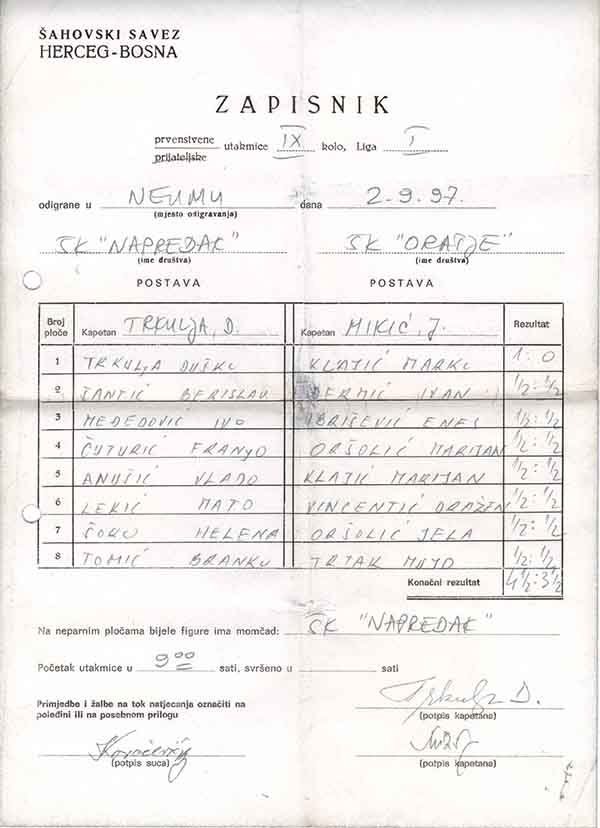 ŠAHOVSKI SAVEZ
HERCEG-BOSNA
ZAPISNIK
prvenstvene
prijateljske
utakmice IX kolo, Liga I
odigrane u NEUMU dana 2.9.97.
(mjesto odigravanja)
ŠK "NAPREDAK" ŠK "ORAŠJE"
(ime društva) (ime društva)
POSTAVA POSTAVA
Broj ploče Kapetan TRKULJA, D. Kapetan MIKIĆ, J. Rezultat
1 TRKULJA DUŠKO KLAJIĆ MARKO 1:0
2 ŠANTIĆ BERISLAV IVAN ½:½
3 MEĐEDOVIĆ IVO ENES ½:½
4 ČUTURIĆ FRANJO ORŠOLIĆ MARIJAN ½:½
5 ANUŠIĆ VLADO KLAJIĆ MARIJAN ½:½
6 LEKIĆ MATO VINCENTIĆ DRAŽEN ½:½
7 ŠORO HELENA ORŠOLIĆ JELA ½:½
8 TOMIĆ BRANKO ½:½
Konačni rezultat 4½:3½
Na neparnim pločama bijele figure ima momčad: ŠK "NAPREDAK"
Početak utakmice u 9 00 sati, svršeno u sati
Primjedbe i žalbe na tok natjecanja označiti na
poleđini ili na posebnom prilogu
Trkulja D.
(potpis kapetana)
(potpis suca) (potpis kapetana)